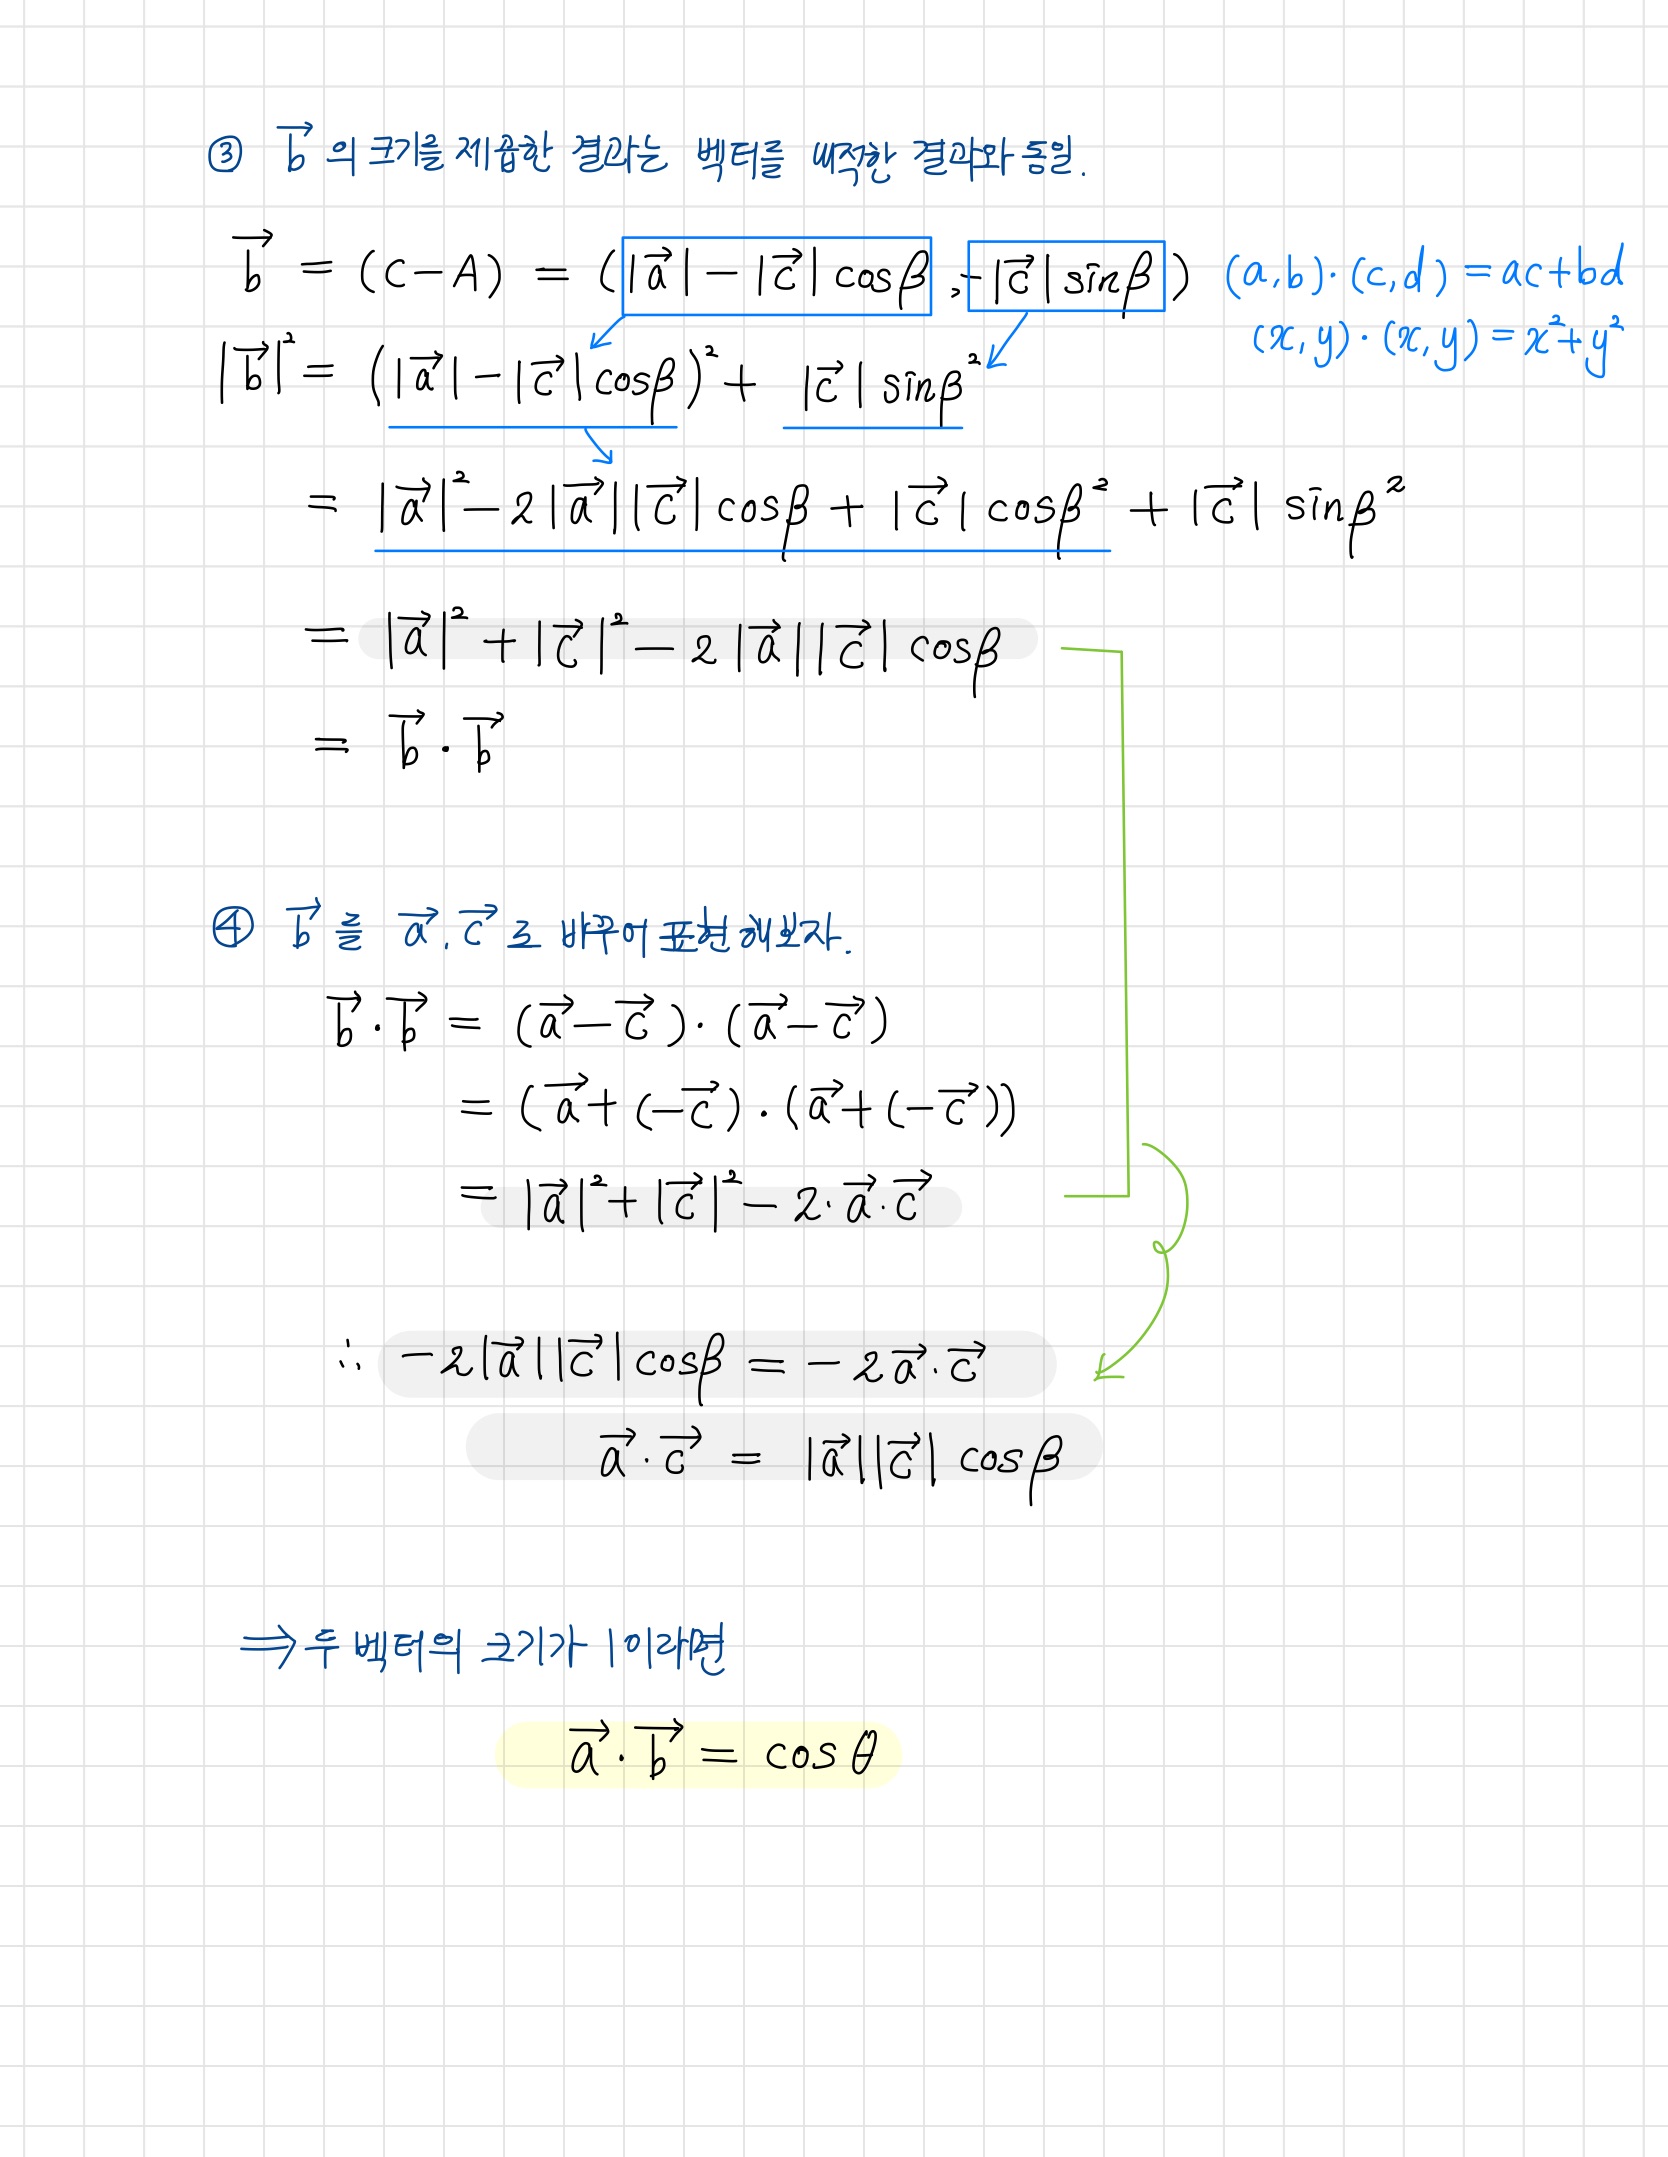 ③ b⃗ 의 크기를 제곱한 결과는 벡터를 내적한 결과와 동일.
b⃗ = (C-A) = (|a⃗|-|c⃗|cosβ, -|c⃗|sinβ) (a,b)·(c,d) = ac+bd
(x,y)·(x,y) = x²+y²
|b⃗|² = (|a⃗|-|c⃗|cosβ)² + |c⃗| sinβ²
= |a⃗|² - 2|a⃗||c⃗| cosβ + |c⃗| cosβ² + |c⃗| sinβ²
= |a⃗|² + |c⃗|² - 2|a⃗||c⃗| cosβ
= b⃗·b⃗
④ b⃗ 를 a⃗, c⃗ 로 바꾸어 표현해보자.
b⃗·b⃗ = (a⃗-c⃗)·(a⃗-c⃗)
= (a⃗+(-c⃗)·(a⃗+(-c⃗))
= |a⃗|² + |c⃗|² - 2·a⃗·c⃗
∴ -2|a⃗||c⃗|cosβ = -2a⃗·c⃗
a⃗·c⃗ = |a⃗||c⃗| cosβ
⇒ 두 벡터의 크기가 1이라면
a⃗·b⃗ = cosθ